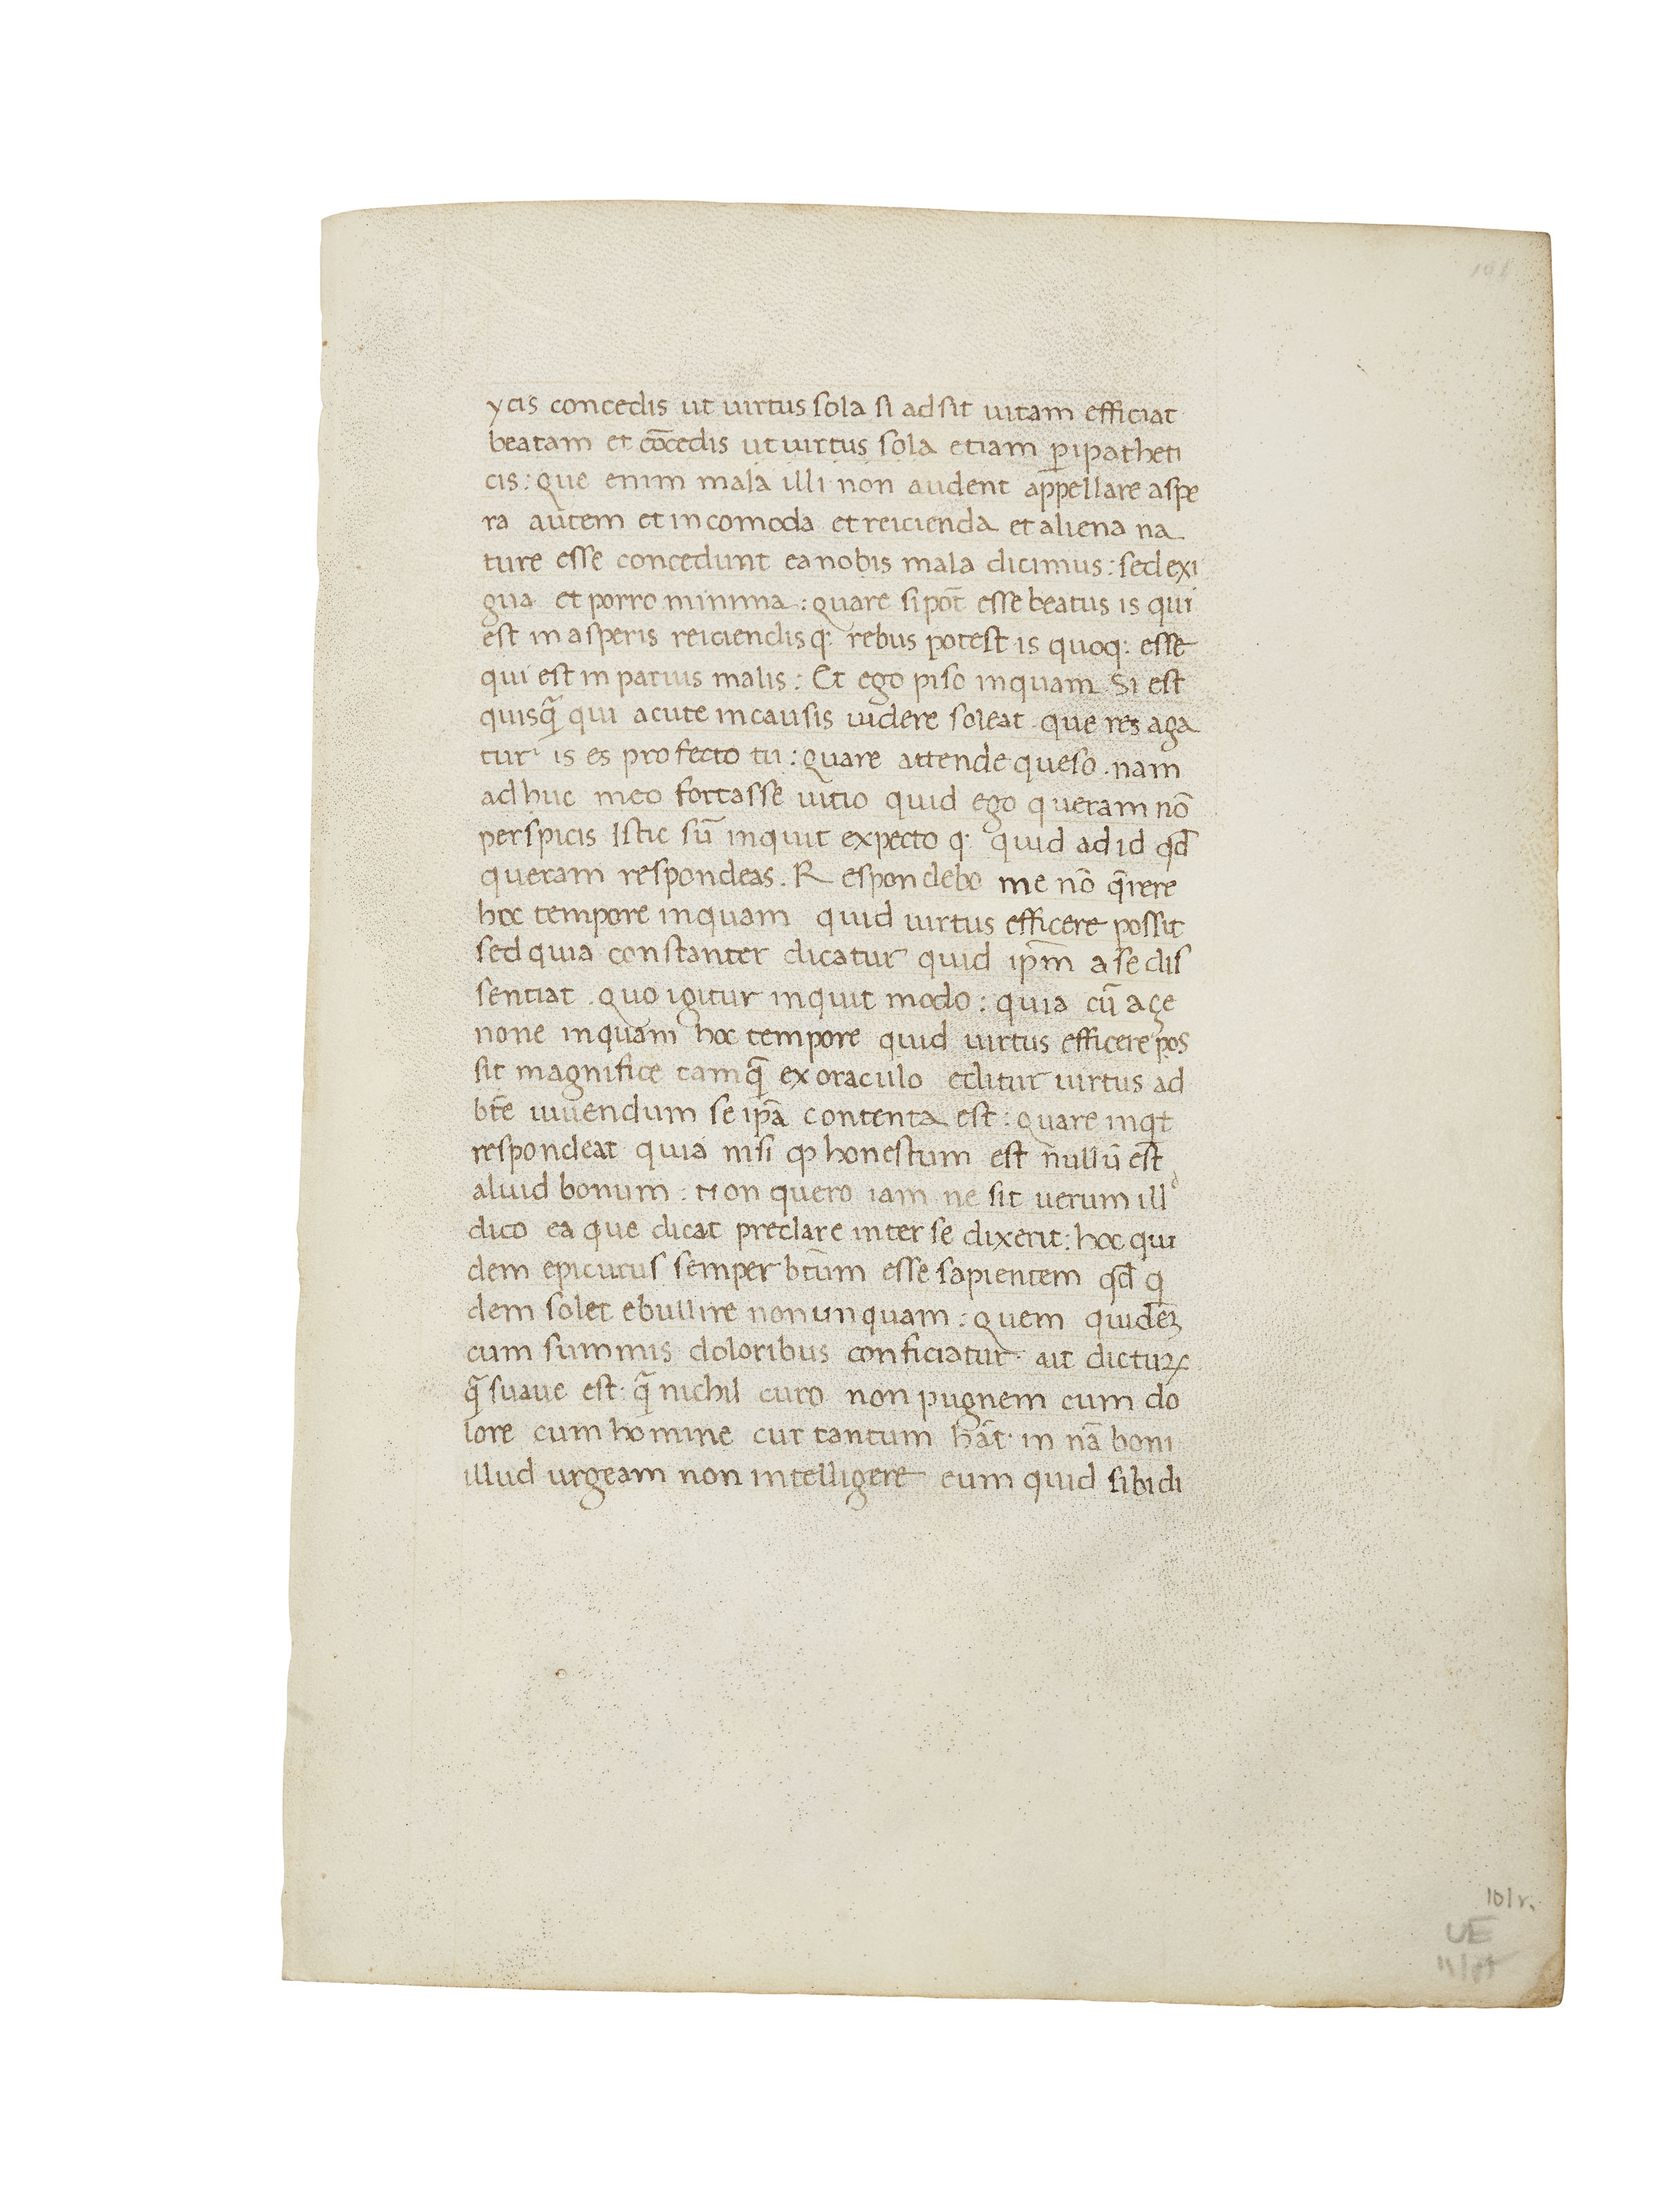 ycis concedis ut uirtus sola si adsit uitam efficiat
beatam et cōcedis ut uirtus sola etiam ꝑipatheti
cis: que enim mala illi non audent appellare aspe
ra autem et incomoda et reicienda et aliena na
ture esse concedunt ea nobis mala dicimus: sed exi
gua et porro minima: quare si pōt esse beatus is qui
est in asperis reiciendisq: rebus potest is quoq: esse
qui est in paruis malis: Et ego piso inquam Si est
quisq̄ qui acute in causis uidere soleat que res aga
tur is es profecto tu: quare attende queso. nam
adhuc meo fortasse uitio quid ego queram nō
perspicis Istic sū inquit expecto q: quid ad id qd̄
queram respondeas. Respondebo me nō q̄rere
hoc tempore inquam quid uirtus efficere possit
sed quia constanter dicatur quid ip̄m a se dis
sentiat. quo igitur inquit modo: quia cū a çe
none inquam hoc tempore quid uirtus efficere pos
sit magnifice tamq̄ ex oraculo editur uirtus ad
bt̄e uiuendum se ip̄a contenta est: quare inqt
respondeat quia nisi qp honestum est nullū est
aliud bonum: non quero iam ne sit uerum illd
dico ea que dicat preclare inter se dixerit: hoc qui
dem epicurus semper bt̄um esse sapientem qd̄ q
dem solet ebullire nonunquam: quem quidēꝫ
cum summis doloribus conficiatur ait dicturꝝ
q̄ suaue est: q̄ nichil curo non pugnem cum do
lore cum homine cur tantum hāt in nā boni
illud urgeam non intelligere eum quid sibi di
101r.
UE